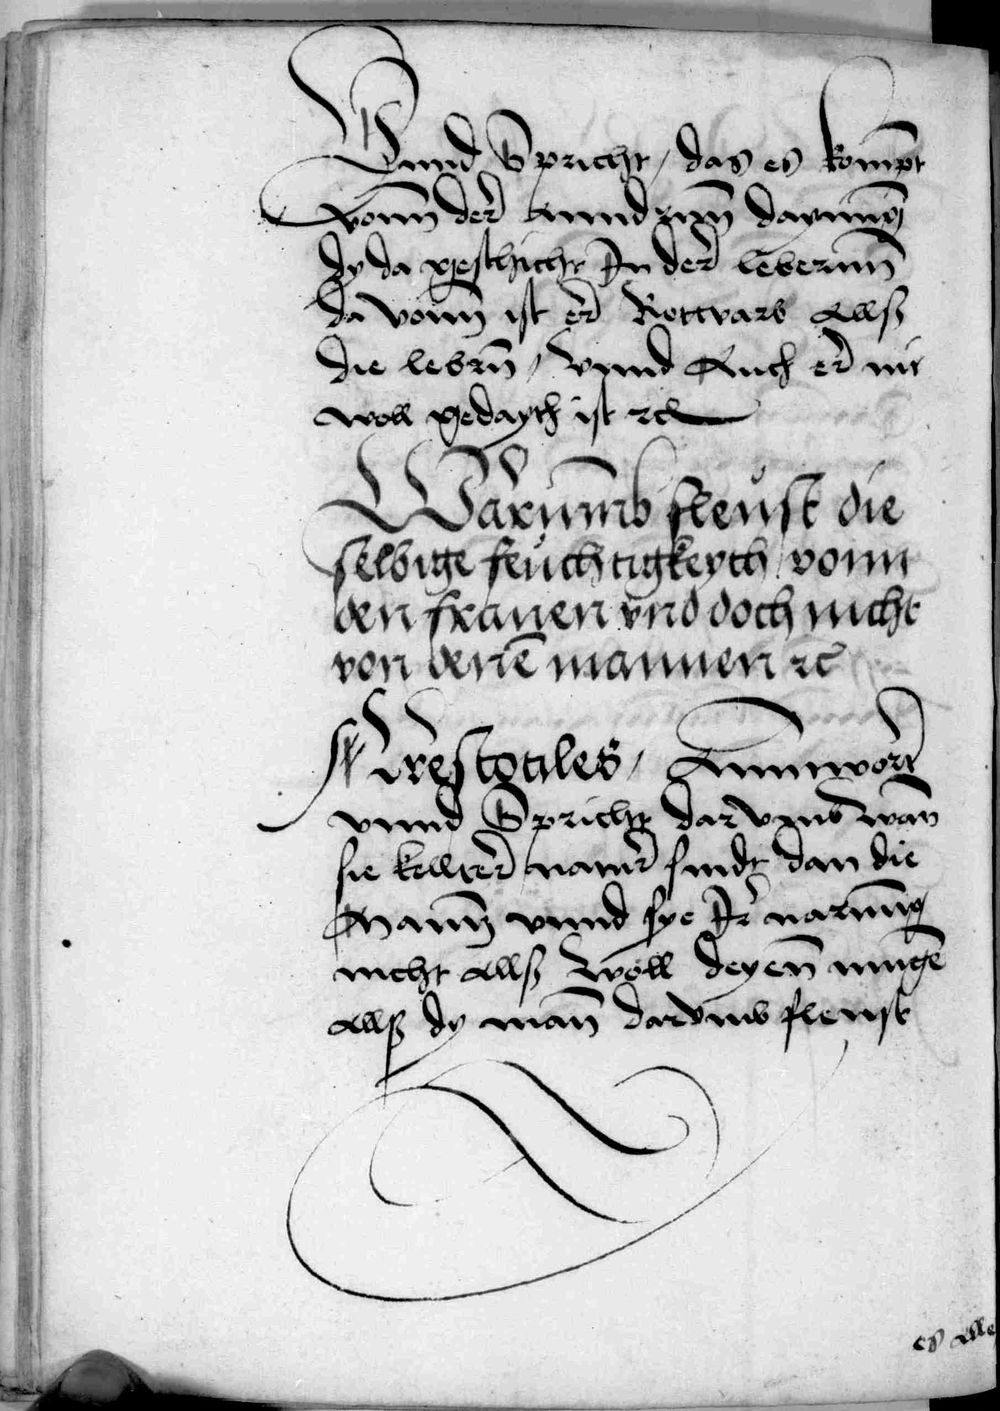 Vnnd Spricht / das es kompt
vonn der annderun dayung
dy da geschicht In der leberinn
da vonn ist er Rottvarb allß
die lebrn / vnnd Auch er nit
woll gedayth ist ꝛc
Warumb fleust die
selbige feuchtigkeyth vonn
den frauen vnd doch nicht
von denē mannen ꝛc
Arestotiles / Anntwort
vnnd Spricht darvmb wan
sie kellter natur sindt dan die
Mann vnnd sye Ir narung
nicht allß woll deyen mugē
allß dy mañ darvmb fleust
es alle